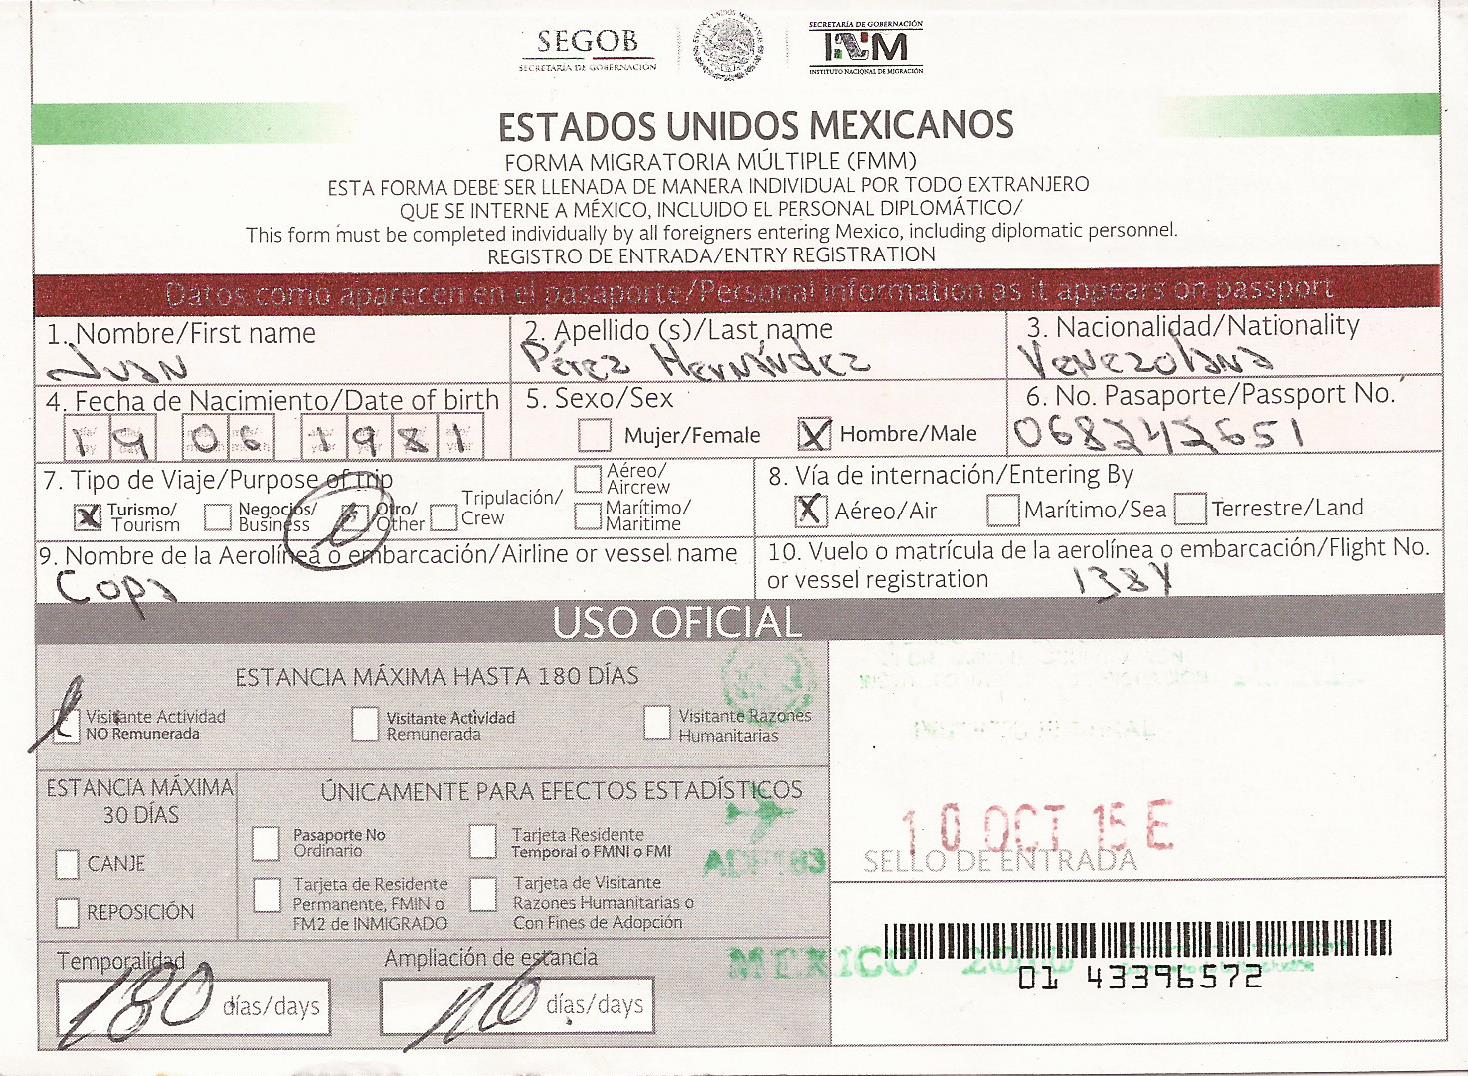 SEGOB
SECRETARÍA DE GOBERNACIÓN
SECRETARÍA DE GOBERNACIÓN
INM
INSTITUTO NACIONAL DE MIGRACIÓN
ESTADOS UNIDOS MEXICANOS
FORMA MIGRATORIA MÚLTIPLE (FMM)
ESTA FORMA DEBE SER LLENADA DE MANERA INDIVIDUAL POR TODO EXTRANJERO
QUE SE INTERNE A MÉXICO, INCLUIDO EL PERSONAL DIPLOMÁTICO/
This form must be completed individually by all foreigners entering Mexico, including diplomatic personnel.
REGISTRO DE ENTRADA/ENTRY REGISTRATION
Datos como aparecen en el pasaporte/Personal information as it appears on passport
1. Nombre/First name
Juan
2. Apellido (s)/Last name
Pérez Hernández
3. Nacionalidad/Nationality
Venezolana
4. Fecha de Nacimiento/Date of birth
19 06 1981
5. Sexo/Sex
Mujer/Female
X Hombre/Male
6. No. Pasaporte/Passport No.
068242651
7. Tipo de Viaje/Purpose of trip
X Turismo/
Tourism
Negocios/
Business
Otro/
Other
Tripulación/
Crew
Aéreo/
Aircrew
Marítimo/
Maritime
8. Vía de internación/Entering By
X Aéreo/Air
Marítimo/Sea
Terrestre/Land
9. Nombre de la Aerolínea o embarcación/Airline or vessel name
Copa
10. Vuelo o matrícula de la aerolínea o embarcación/Flight No.
or vessel registration
USO OFICIAL
ESTANCIA MÁXIMA HASTA 180 DÍAS
Visitante Actividad
NO Remunerada
Visitante Actividad
Remunerada
Visitante Razones
Humanitarias
ESTANCIA MÁXIMA
30 DÍAS
CANJE
REPOSICIÓN
ÚNICAMENTE PARA EFECTOS ESTADÍSTICOS
Pasaporte No
Ordinario
Tarjeta Residente
Temporal o FMNI o FMI
Tarjeta de Residente
Permanente, FMIN o
FM2 de INMIGRADO
Tarjeta de Visitante
Razones Humanitarias o
Con Fines de Adopción
Temporalidad
180 días/days
Ampliación de estancia
días/days
10 OCT 15 E
SELLO DE ENTRADA
MEXICO
01 43396572